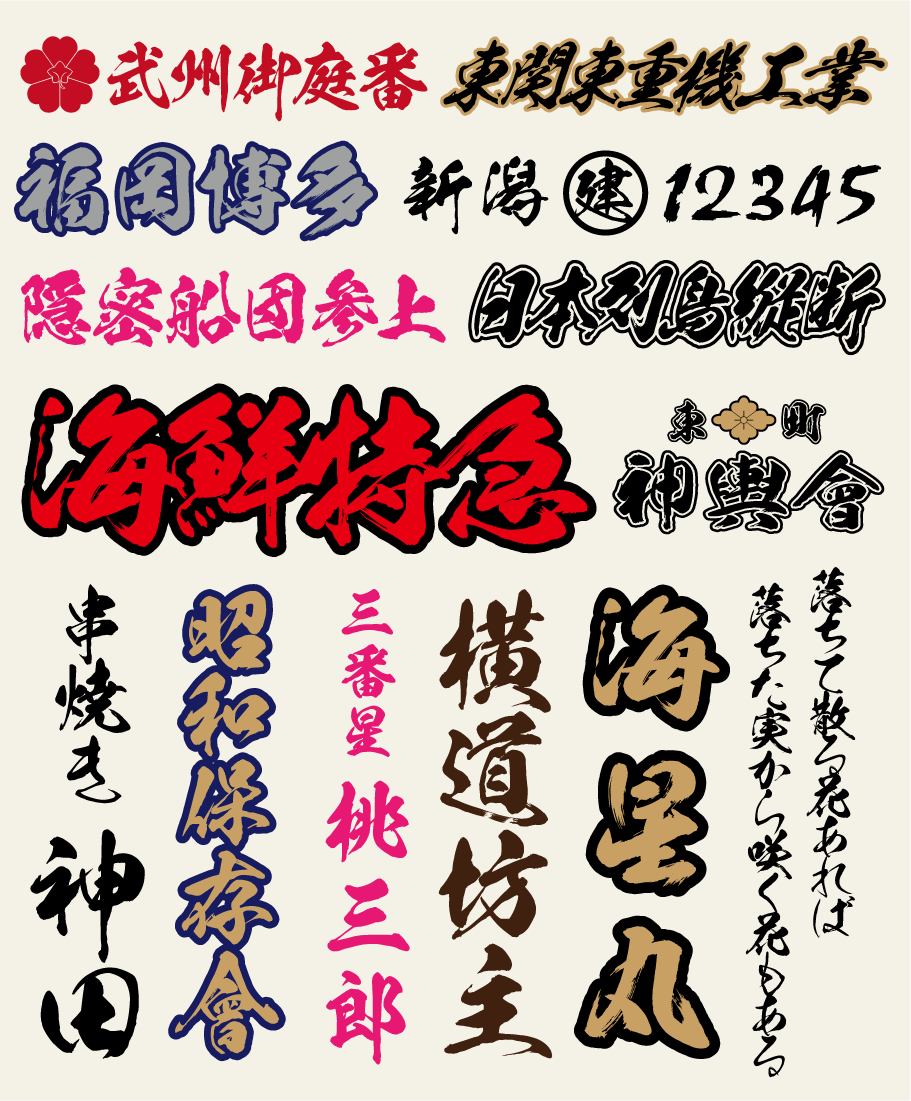 武州御庭番
東関東重機工業
福岡博多
新潟 建 12345
隠密船団参上
日本列島縦断
海鮮特急
東町
神輿會
落ちて散る花あれば
落ちた実から咲く花もある
海星丸
横道坊主
三番星
桃三郎
昭和保存會
串焼き
神田